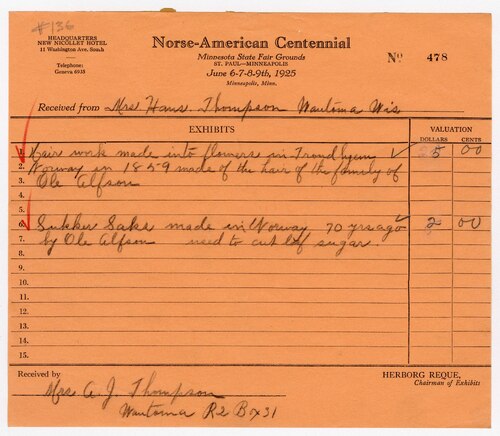 #136
HEADQUARTERS
NEW NICOLLET HOTEL
11 Washington Ave. South
Telephone:
Geneva 6935
Norse-American Centennial
Minnesota State Fair Grounds
ST. PAUL—MINNEAPOLIS
June 6-7-8-9th, 1925
Minneapolis, Minn.
No 478
Received from Mrs Hans Thompson Wautoma Wis
EXHIBITS
VALUATION
DOLLARS CENTS
1. Hair work made into flowers in Trondhjem 5 00
2. Norway in 1859 made of the hair of the family of
3. Ole Alfson
4.
5.
6. Sukker Saks made in Norway 70 yrs ago 2 00
7. by Ole Alfson used to cut lof sugar.
8.
9.
10.
11.
12.
13.
14.
15.
Received by
Mrs A. J. Thompson
Wautoma R2 Box 31
HERBORG REQUE,
Chairman of Exhibits